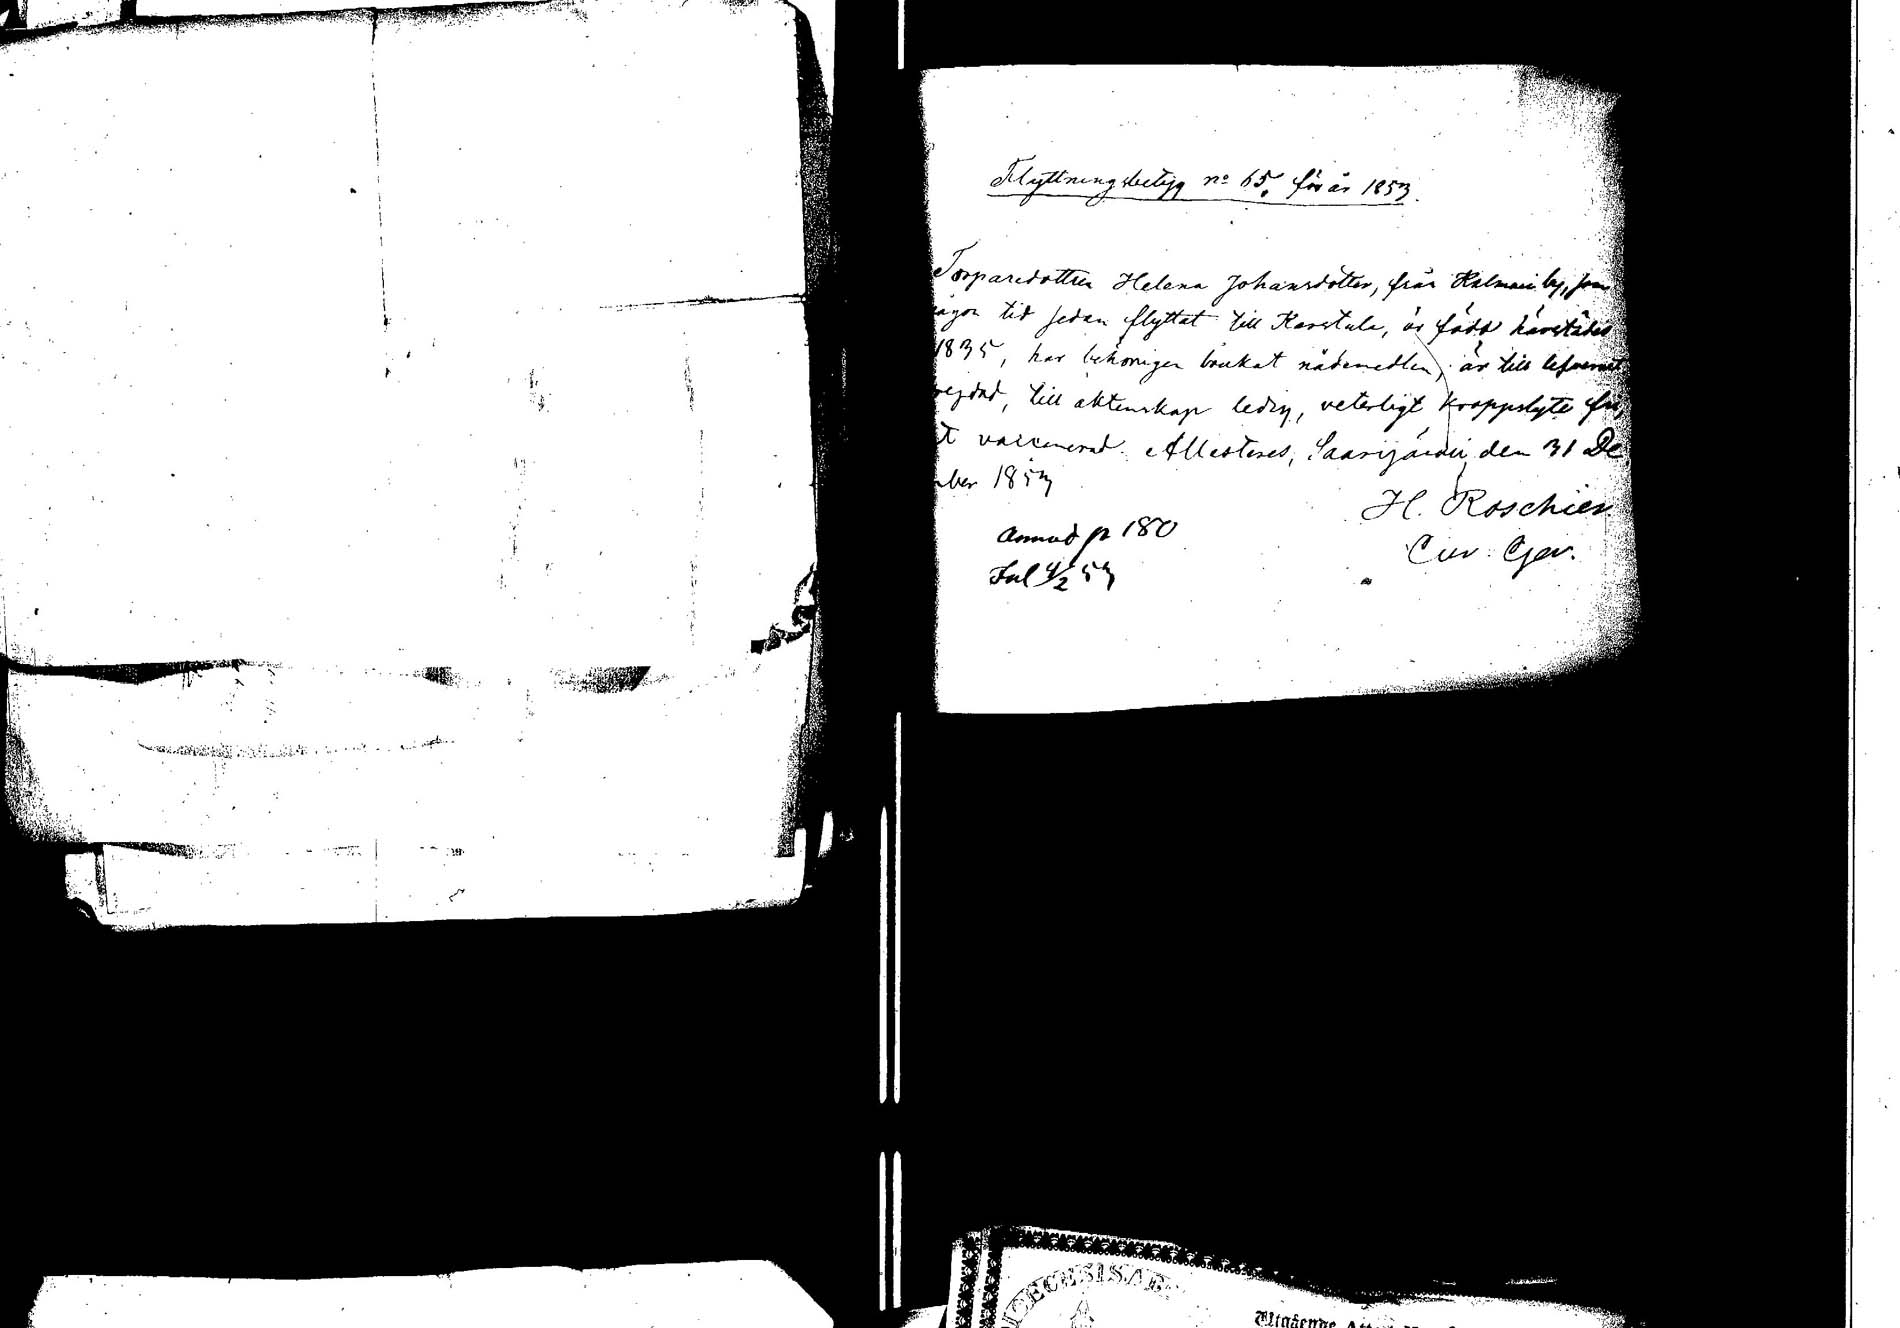 Flyttningsbetyg no 65. för år 1853.
Torparedottren Helena Johansdotter, från Kalmari by, som
ågon tid sedan flyttat till Karstula, är född härstädes
1835, har behörigen brukat nådemedlen, är till lefvernet
regdad, till äktenskap ledig, veterligt kroppslyte fri,
t vaccinerad. Attesteres, Saarijärvi den 31 De
mber 1853
H. Roschier
Annot p 180
Cur. Ger.
DIOECESIS AB
Utgående